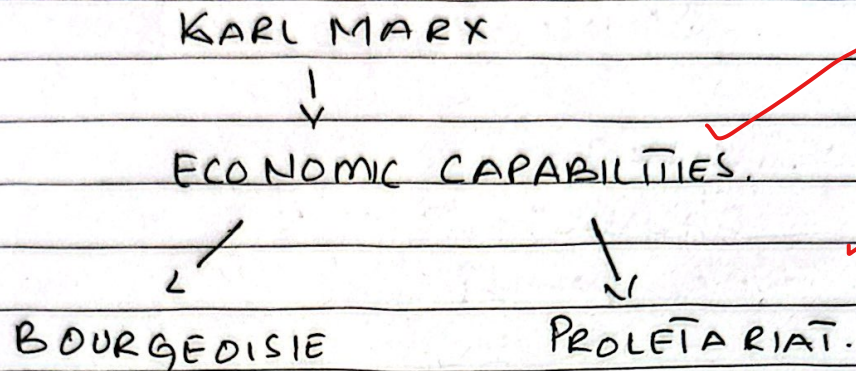 KARL MARX
ECONOMIC CAPABILITIES.
BOURGEOISIE PROLETARIAT.